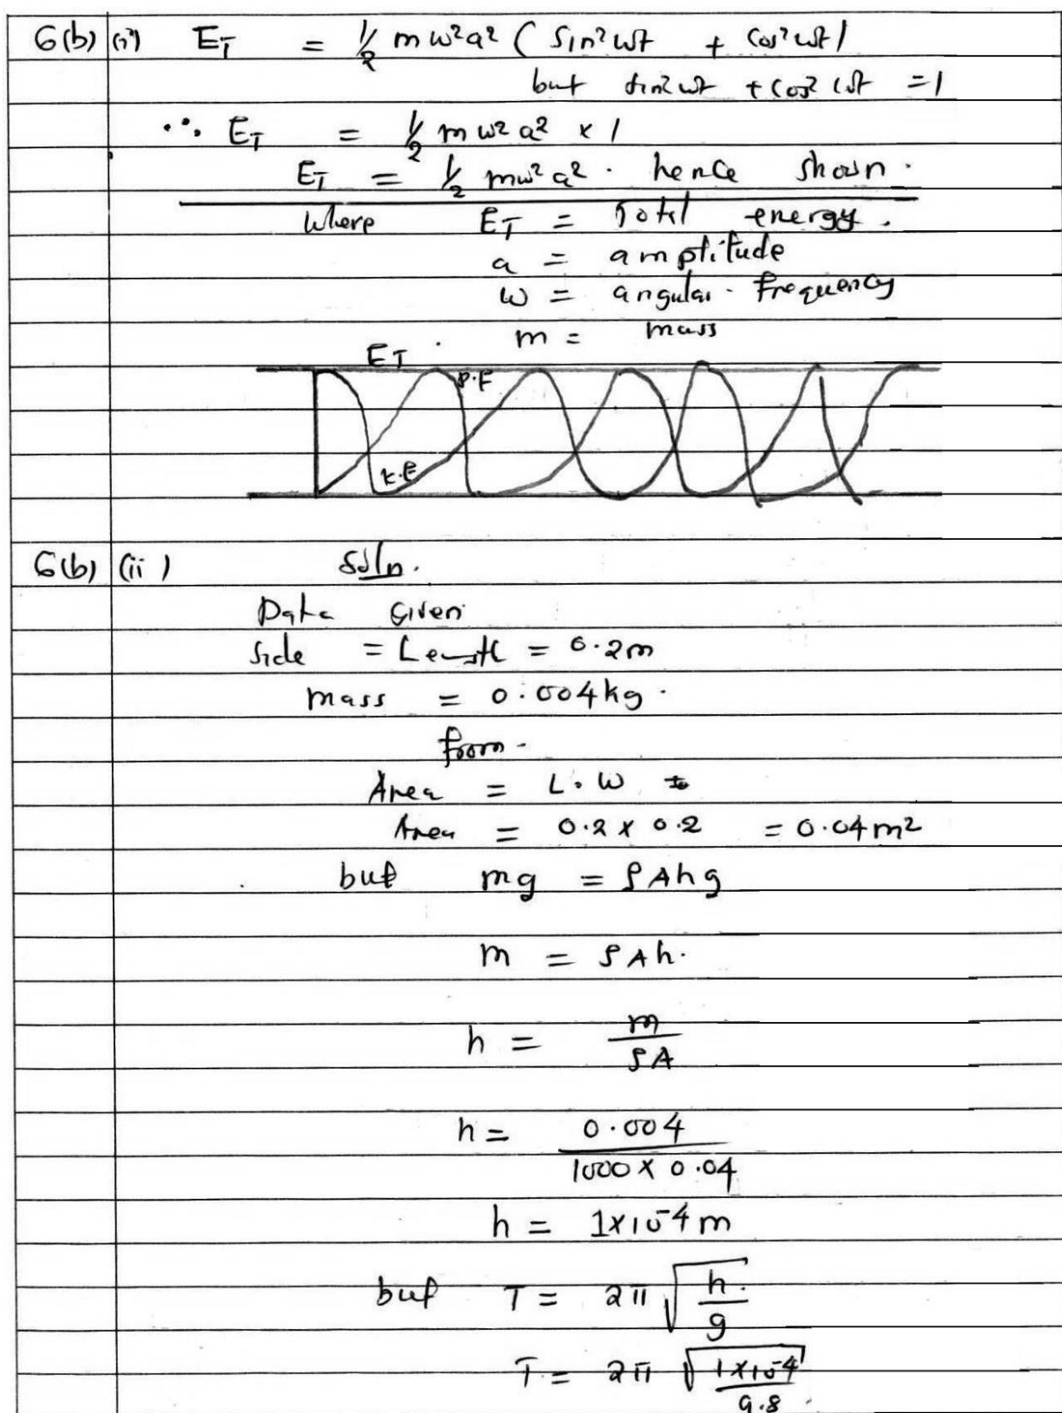 6(b) (i) E_T = 1/2 mω²a² (Sin²ωt + Cos²ωt)
but sin²ωt + Cos²ωt = 1
∴ E_T = 1/2 mω²a² × 1
E_T = 1/2 mω²a². hence shown.
Where E_T = Total energy.
a = amplitude
ω = angular frequency
m = mass
E_T
P.E
K.E
6(b) (ii) Soln.
Data Given
Side = Length = 0.2m
mass = 0.004kg.
from.
Area = L.W
Area = 0.2 x 0.2 = 0.04m²
but mg = ρAhg
m = ρAh.
h = m/ρA
h = 0.004/1000 x 0.04
h = 1x10⁻⁴m
but T = 2π√h/g
T = 2π√1x10⁻⁴/9.8